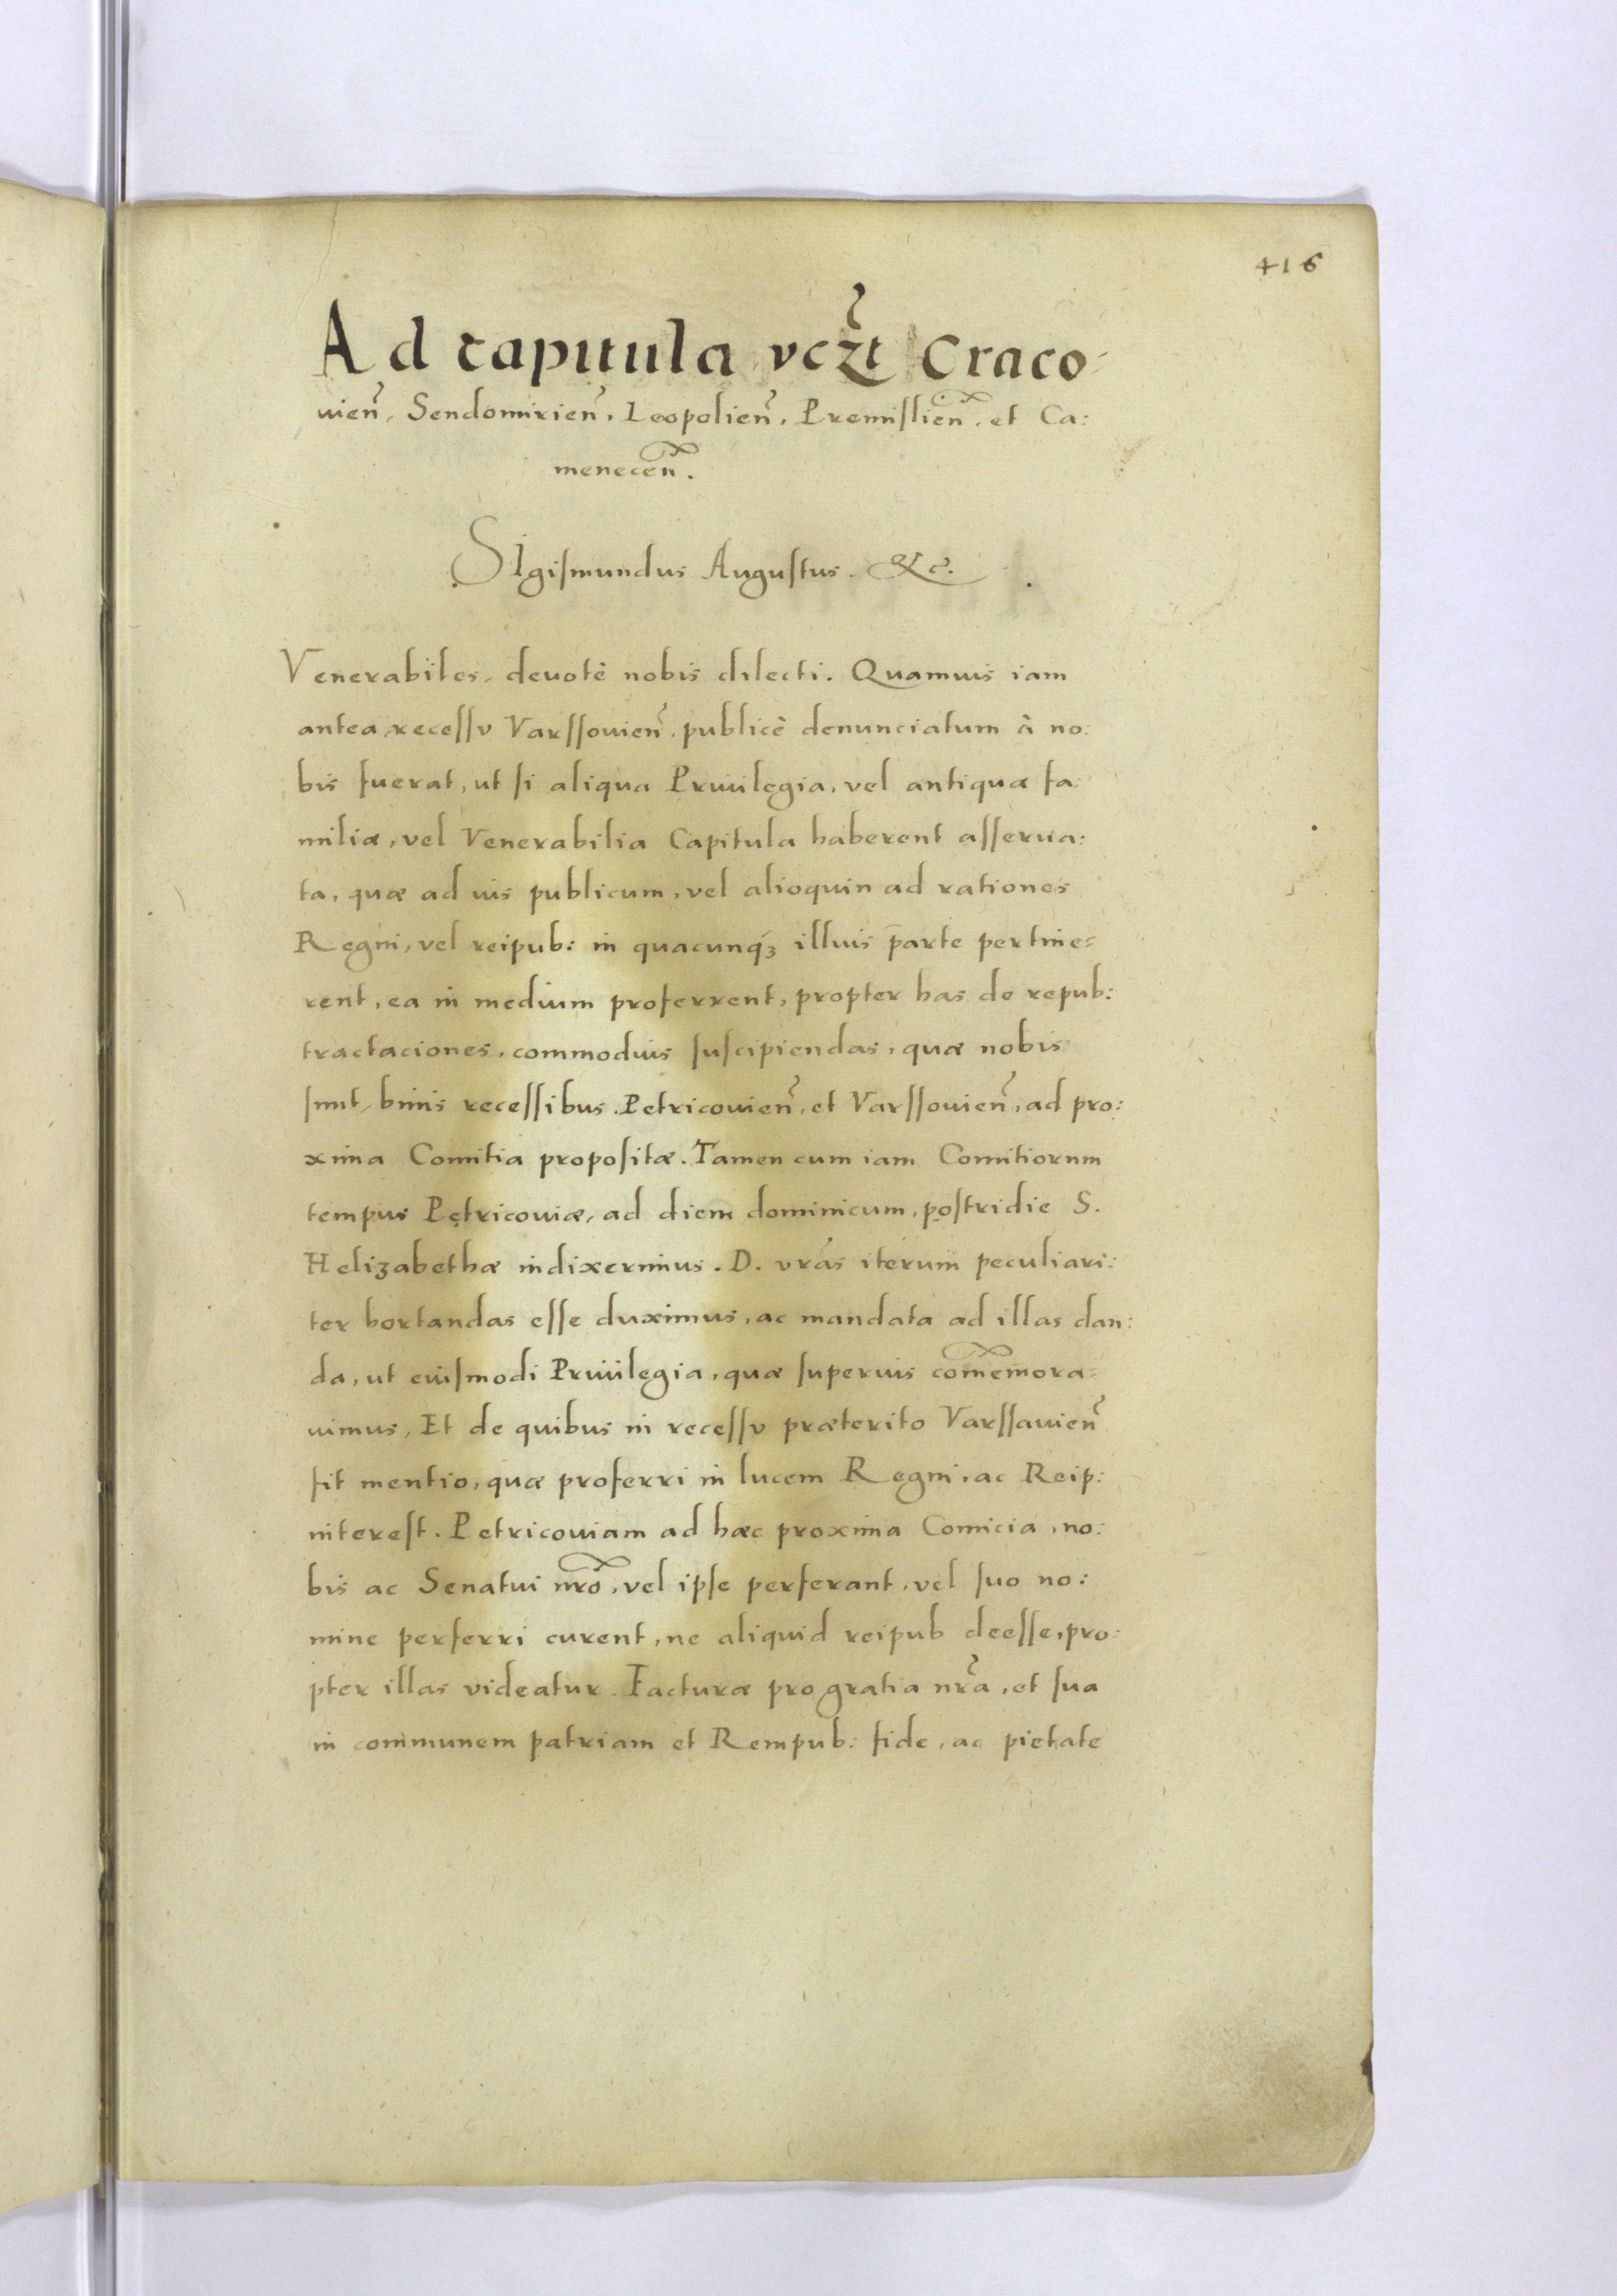 416
Ad capitula vczt Craco-
uien̄, Sendomirien̄, Leopolien̄, Premislien̄, et Ca:
menecen̄.
SIgismundus Augustus. &c.
Venerabiles, deuotè nobis dilecti. Quamuis iam
antea, recessv Varssouien̄, publicè denunciatum à no:
bis fuerat, ut si aliqua Priuilegia, vel antiquæ fa
miliæ, vel Venerabilia Capitula haberent asserua:
ta, quæ ad ius publicum, vel alioquin ad rationes
Regni, vel reipub: in quacunqꝫ illius parte pertine=
rent, ea in medium proferrent, propter has de repub:
tractaciones, commodius suscipiendas, quæ nobis
sunt, binis recessibus Petricouien̄, et Varssouien̄, ad pro:
xima Comitia propositæ. Tamen cum iam Comitiorum
tempus Petricouiæ, ad diem dominicum, postridie S.
Helizabethæ indixerimus. D. vrās iterum peculiari:
ter hortandas esse duximus, ac mandata ad illas dan:
da, ut eiusmodi Priuilegia, quæ superius com̄emora=
uimus, Et de quibus in recessv præterito Varssauien̄
fit mentio, quæ proferri in lucem Regni, ac Reip:
interest. Petricouiam ad hæc proxima Comicia, no:
bis ac Senatui nr̄o, vel ipse perferant, vel suo no:
mine perferri curent, ne aliquid reipub deesse, pro:
pter illas videatur. Facturæ pro gratia nr̄a, et sua
in communem patriam et Rempub: fide, ac pietate